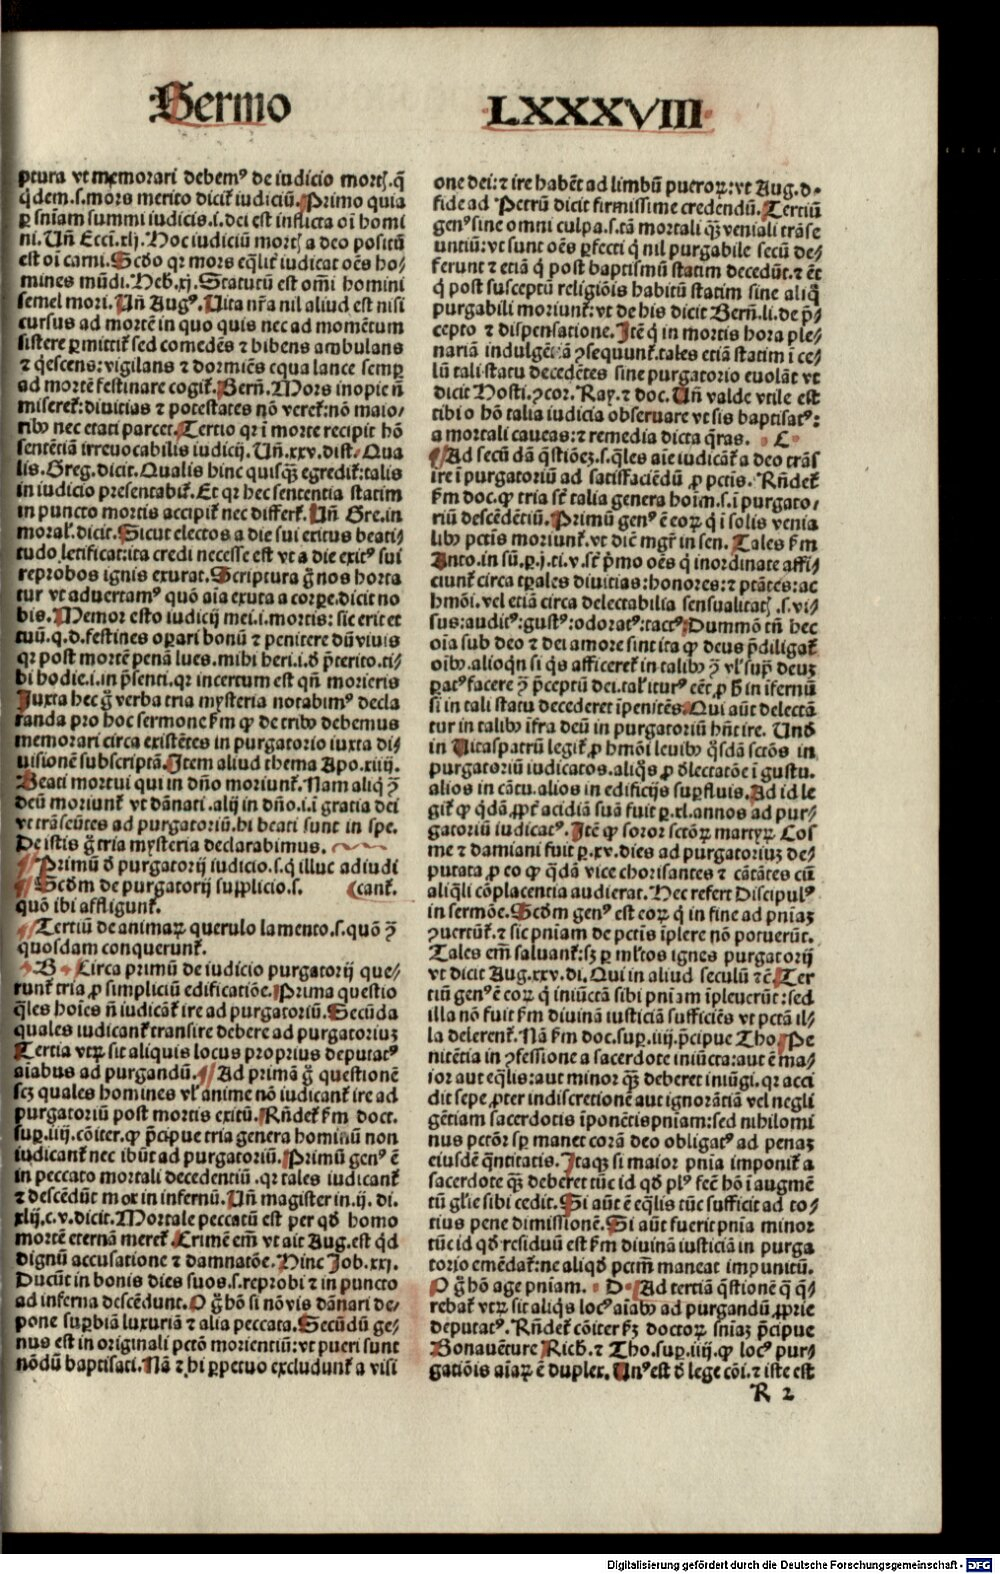 Sermo LXXXVIII
ptura vt memorari debemꝰ de iudicio mortꝭ. q̄
q̇dem .s. mors merito dicit̃ iudiciū. Primo quia
ꝑ sn̄iam summi iudicis .i. dei est inflicta oī homi
ni. Vn̄ Ecci .xlj. Hoc iudiciū mortꝭ a deo positū
est oī carni. Scd̄o qꝛ mors eq̄lit̃ iudicat oēs ho⸗
mines mūdi. Heb. xj. Statutū est om̄i homini
semel mori. Vn̄ Augꝰ. Vita nr̄a nil aliud est nisi
cursus ad mortē in quo quis nec ad momētum
sistere ꝑmittit̃ sed comedēs ⁊ bibens ambulans
⁊ q̇escens: vigilans ⁊ dormiēs equa lance semꝑ
ad mortē festinare cogit̃. Bern̄. Mors inopie n̄
miseret̃: diuitias ⁊ potestates nō veret̃: nō maio⸗
ribꝰ nec etati parcet. Tertio qꝛ ī morte recipit hō
sentētiā irreuocabilis iudicij. Vn̄ .xxv. dist. Qua
lis. Greg. dicit. Qualis hinc quisqꝫ egredit̃: talis
in iudicio presentabit̃. Et qꝛ hec sententia statim
in puncto mortis accipit̃ nec differt̃. Vn̄ Gre. in
moral̃. dicit. Sicut electos a die sui exitus beati⸗
tudo letificat: ita credi necesse est vt a die exitꝰ sui
reprobos ignis exurat. Scriptura g̊ nos horta
tur vt aduertamꝰ quō aīa exuta a corꝑe. dicit no
bis. Memor esto iudicij mei .i. mortis: sic erit et
tuū. q. d. festines oꝑari bonū ⁊ penitere dū viuis
qꝛ post mortē penā lues. mihi heri .i. d̓ p̄terito. ti⸗
bi hodie .i. in p̄senti. qꝛ incertum est qn̄ morieris
Juxta hec g̊ verba tria mysteria notabimꝰ decla
randa pro hoc sermone ẜm ꝙ de tribꝰ debemus
memorari circa existētes in purgatorio iuxta di⸗
uisionē subscriptā. Item aliud thema Apo. xiiij.
Beati mortui qui in dn̄o moriunt̃. Nam aliq̇ ꝯ̄
deū moriunt̃ vt dānati. alij in dn̄o .i. ī gratia dei
vt trāseūtes ad purgatoriū. hi beati sunt in spe.
De istis g̊ tria mysteria declarabimus.
¶ Primū d̓ purgatorij iudicio .s. q̇ illuc adiudi
¶ Scd̄m de purgatorij supplicio .s. (cant̃.
quō ibi affligunt̃.
¶ Tertiū de animaꝝ querulo lamento .s. quō ꝯ̄
quosdam conquerunt̃.
B Circa primū de iudicio purgatorij que⸗
runt̃ tria ꝓ simpliciū edificatiōe. Prima questio
q̄les hoīes n̄ iudicāt̃ ire ad purgatoriū. Secūda
quales iudicant̃ transire debere ad purgatoriuꝫ
Tertia vtꝝ sit aliquis locus proprius deputatꝰ
aīabus ad purgandū. ¶ Ad primā g̊ questionē
scꝫ quales homines vl̃ anime nō iudicant̃ ire ad
purgatoriū post mortis exitū. Rn̄det̃ ẜm doct.
suꝑ .iiij. cōiter. ꝙ p̄cipue tria genera hominū non
iudicant̃ nec ibūt ad purgatoriū. Primū genꝰ ē
in peccato mortali decedentiū. qꝛ tales iudicant̃
⁊ descēdūt mox in infernū. Vn̄ magister in .ij. di.
xlij. c. v. dicit. Mortale peccatū est per qd̓ homo
mortē eternā meret̃. Crimē em̄ vt ait Aug. est q̇d
dignū accusatione ⁊ damnatōe. Hinc Job. xxj.
Ducūt in bonis dies suos .s. reprobi ⁊ in puncto
ad inferna descēdunt. O g̊ hō si nō vis dānari de⸗
pone suꝑbiā luxuriā ⁊ alia peccata. Secūdū ge⸗
nus est in originali pctō morientiū: vt pueri sunt
nōdū baptisati. Nā ⁊ hi ꝑpetuo excludunt̃ a visi
one dei: ⁊ ire habēt ad limbū pueroꝝ: vt Aug. d⸗
fide ad Petrū dicit firmissime credendū. Tertiū
genꝰ sine omni culpa .s. tā mortali qꝫ veniali trāse
untiū: vt sunt oēs ꝑfecti q̇ nil purgabile secū de⸗
ferunt ⁊ etiā q̇ post baptismū statim decedūt. ⁊ ēt
q̇ post susceptū religiōis habitū statim sine aliq̊
purgabili moriunt̃: vt de his dicit Bern̄. li. de p̄⸗
cepto ⁊ dispensatione. Itē q̇ in mortis hora ple⸗
nariā indulgētiā ꝯsequunt̃. tales etiā statim ī ce⸗
lū tali statu decedētes sine purgatorio euolāt vt
dicit Hosti. ꝯcor. Ray. ⁊ doc. Vn̄ valde vtile est
tibi o hō talia iudicia obseruare vt sis baptisatꝰ:
a mortali caueas: ⁊ remedia dicta q̄ras. C
¶ Ad secū dā q̄stiōeꝫ .s. q̄les aīe iudicāt̃ a deo trās
ire ī purgatoriū ad satiffaciēdū ꝓ pctīs. Rn̄det̃
ẜm doc. ꝙ tria st̄ talia genera hoīm .s. ī purgato⸗
riū descēdētiū. Primū genꝰ ē eoꝝ q̇ ī solis venia
libꝰ pctīs moriunt̃. vt dīc mgr̄ in sen. Tales ẜm
Anto. in sū. ꝑ. j. ti. v. st̄ p̄mo oēs q̇ inordinate affi⸗
ciunt̃ circa tꝑales diuitias: honores: ⁊ ptātes: ac
hmōi. vel etiā circa delectabilia sensualitatꝭ .s. vi⸗
sus: auditꝰ: gustꝰ: odoratꝰ: tactꝰ. Dummō tn̄ hec
oīa sub deo ⁊ dei amore sint ita ꝙ deus p̄diligat̃
oībꝰ. alioq̇n si q̇s afficeret̃ in talibꝰ ꝯ̄ vl̃ supꝭ deuꝫ
ꝑatꝰ facere ꝯ̄ p̄ceptū dei. tal̃ iturꝰ eēt ꝓ h̓ in īfernū
si in tali statu decederet īpenitēs. Qui aūt delectā
tur in talibꝰ īfra deū in purgatoriū hn̄t ire. Vnd̓
in Vitaspatrū legit̃ ꝓ hmōi leuibꝰ q̇sdā sctōs in
purgatoriū iudicatos. aliq̇s ꝓ d̓lectatōe ī gustu.
alios in cātu. alios in edificijs suꝑfluis. Ad id le
git̃ ꝙ q̇dā ꝓpt̃ acidiā suā fuit ꝑ .xl. annos ad pur⸗
gatoriū iudicatꝰ. Itē ꝙ soror sctōꝝ martyꝝ Cos
me ⁊ damiani fuit ꝑ .xv. dies ad purgatoriuꝫ de⸗
putata ꝓ eo ꝙ q̇dā vice chorisantes ⁊ cātātes cū
aliq̇li cōplacentia audierat. Hec refert Discipulꝰ
in sermōe. Scd̄m genꝰ est eoꝝ q̇ in fine ad pn̄iaꝫ
ꝯuertūt̃. ⁊ sic pn̄iam de pctīs īplere nō potuerūt.
Tales em̄ saluant̃: sꝫ ꝑ ml̃tos ignes purgatorij
vt dicit Aug. xxv. di. Qui in aliud seculū ⁊c̄. Ter
tiū genꝰ ē eoꝝ q̇ iniūctā sibi pn̄iam īpleuerūt: sed
illa nō fuit ẜm diuinā iusticiā sufficiēs vt pctā il⸗
la delerent̃. Nā ẜm doc. suꝑ .iiij. p̄cipue Tho. Pe
nitētia in ꝯfessione a sacerdote iniūcta: aut ē ma⸗
ior aut eq̄lis: aut minor qꝫ deberet iniūgi. qꝛ acci
dit sepe ꝓpter indiscretionē aut ignorātiā vel negli
gētiam sacerdotis īponētis pn̄iam: sed nihilomi
nus pctōr sꝑ manet corā deo obligatꝰ ad penaꝫ
eiusdē q̄ntitatis. Itaqꝫ si maior pn̄ia imponit̃ a
sacerdote qꝫ deberet tūc id qd̓ plꝰ fecē hō ī augmē
tū gl̃ie sibi cedit. Si aūt ē eq̄lis tūc sufficit ad to⸗
tius pene dimissionē. Si aūt fuerit pn̄ia minor
tūc id qd̓ residuū est ẜm diuinā iusticiā in purga
torio emēdat̃: ne aliqd̓ pctm̄ maneat impunitū.
O g̊ hō age pn̄iam. D Ad tertiā q̄stionē q̄ q̄⸗
rebat̃ vtꝝ sit aliq̇s locꝰ aīabꝰ ad purgandū ꝓprie
deputatꝰ. Rn̄det̃ cōiter ẜꝫ doctoꝝ sn̄iaꝫ p̄cipue
Bonauēture Rich. ⁊ Tho. suꝑ .iiij. ꝙ locꝰ pur⸗
gatiōis aīaꝝ ē duplex. Vnꝰ est d̓ lege cōi. ⁊ iste est
R 2
Digitalisierung gefördert durch die Deutsche Forschungsgemeinschaft - DFG